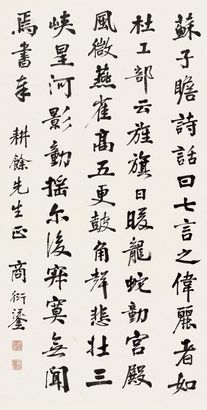 蘇子瞻詩話曰七言之偉麗者如
杜工部云旌旗日暖龍蛇動宮殿
風微燕雀高五更鼓角聲悲壯三
峽星河影動搖尔後寂寞無聞
焉書奉
耕餘先生正
商衍鎏